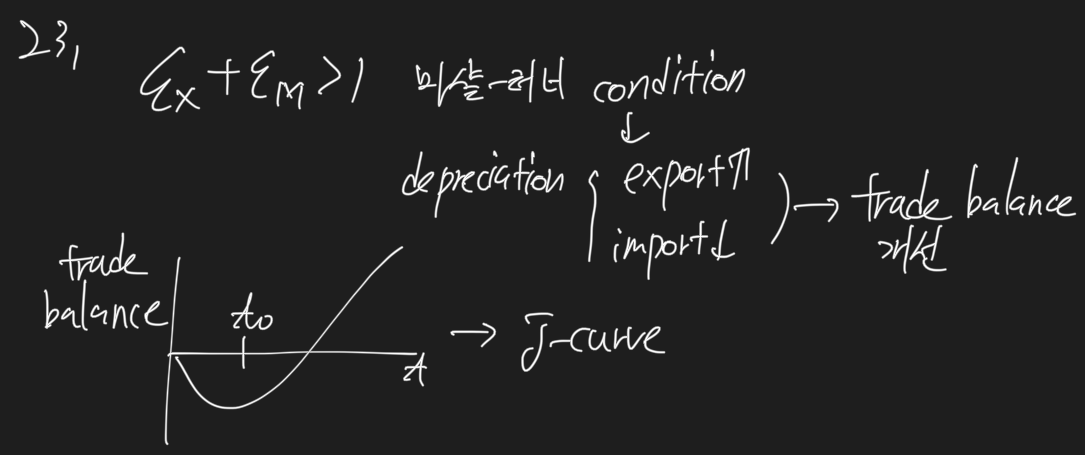 23,
ε_X + ε_M > 1 마샬-러너 condition
↓
depreciation { export↑ import↓ ) → trade balance 개선
trade balance
t₀
t
→ J-curve